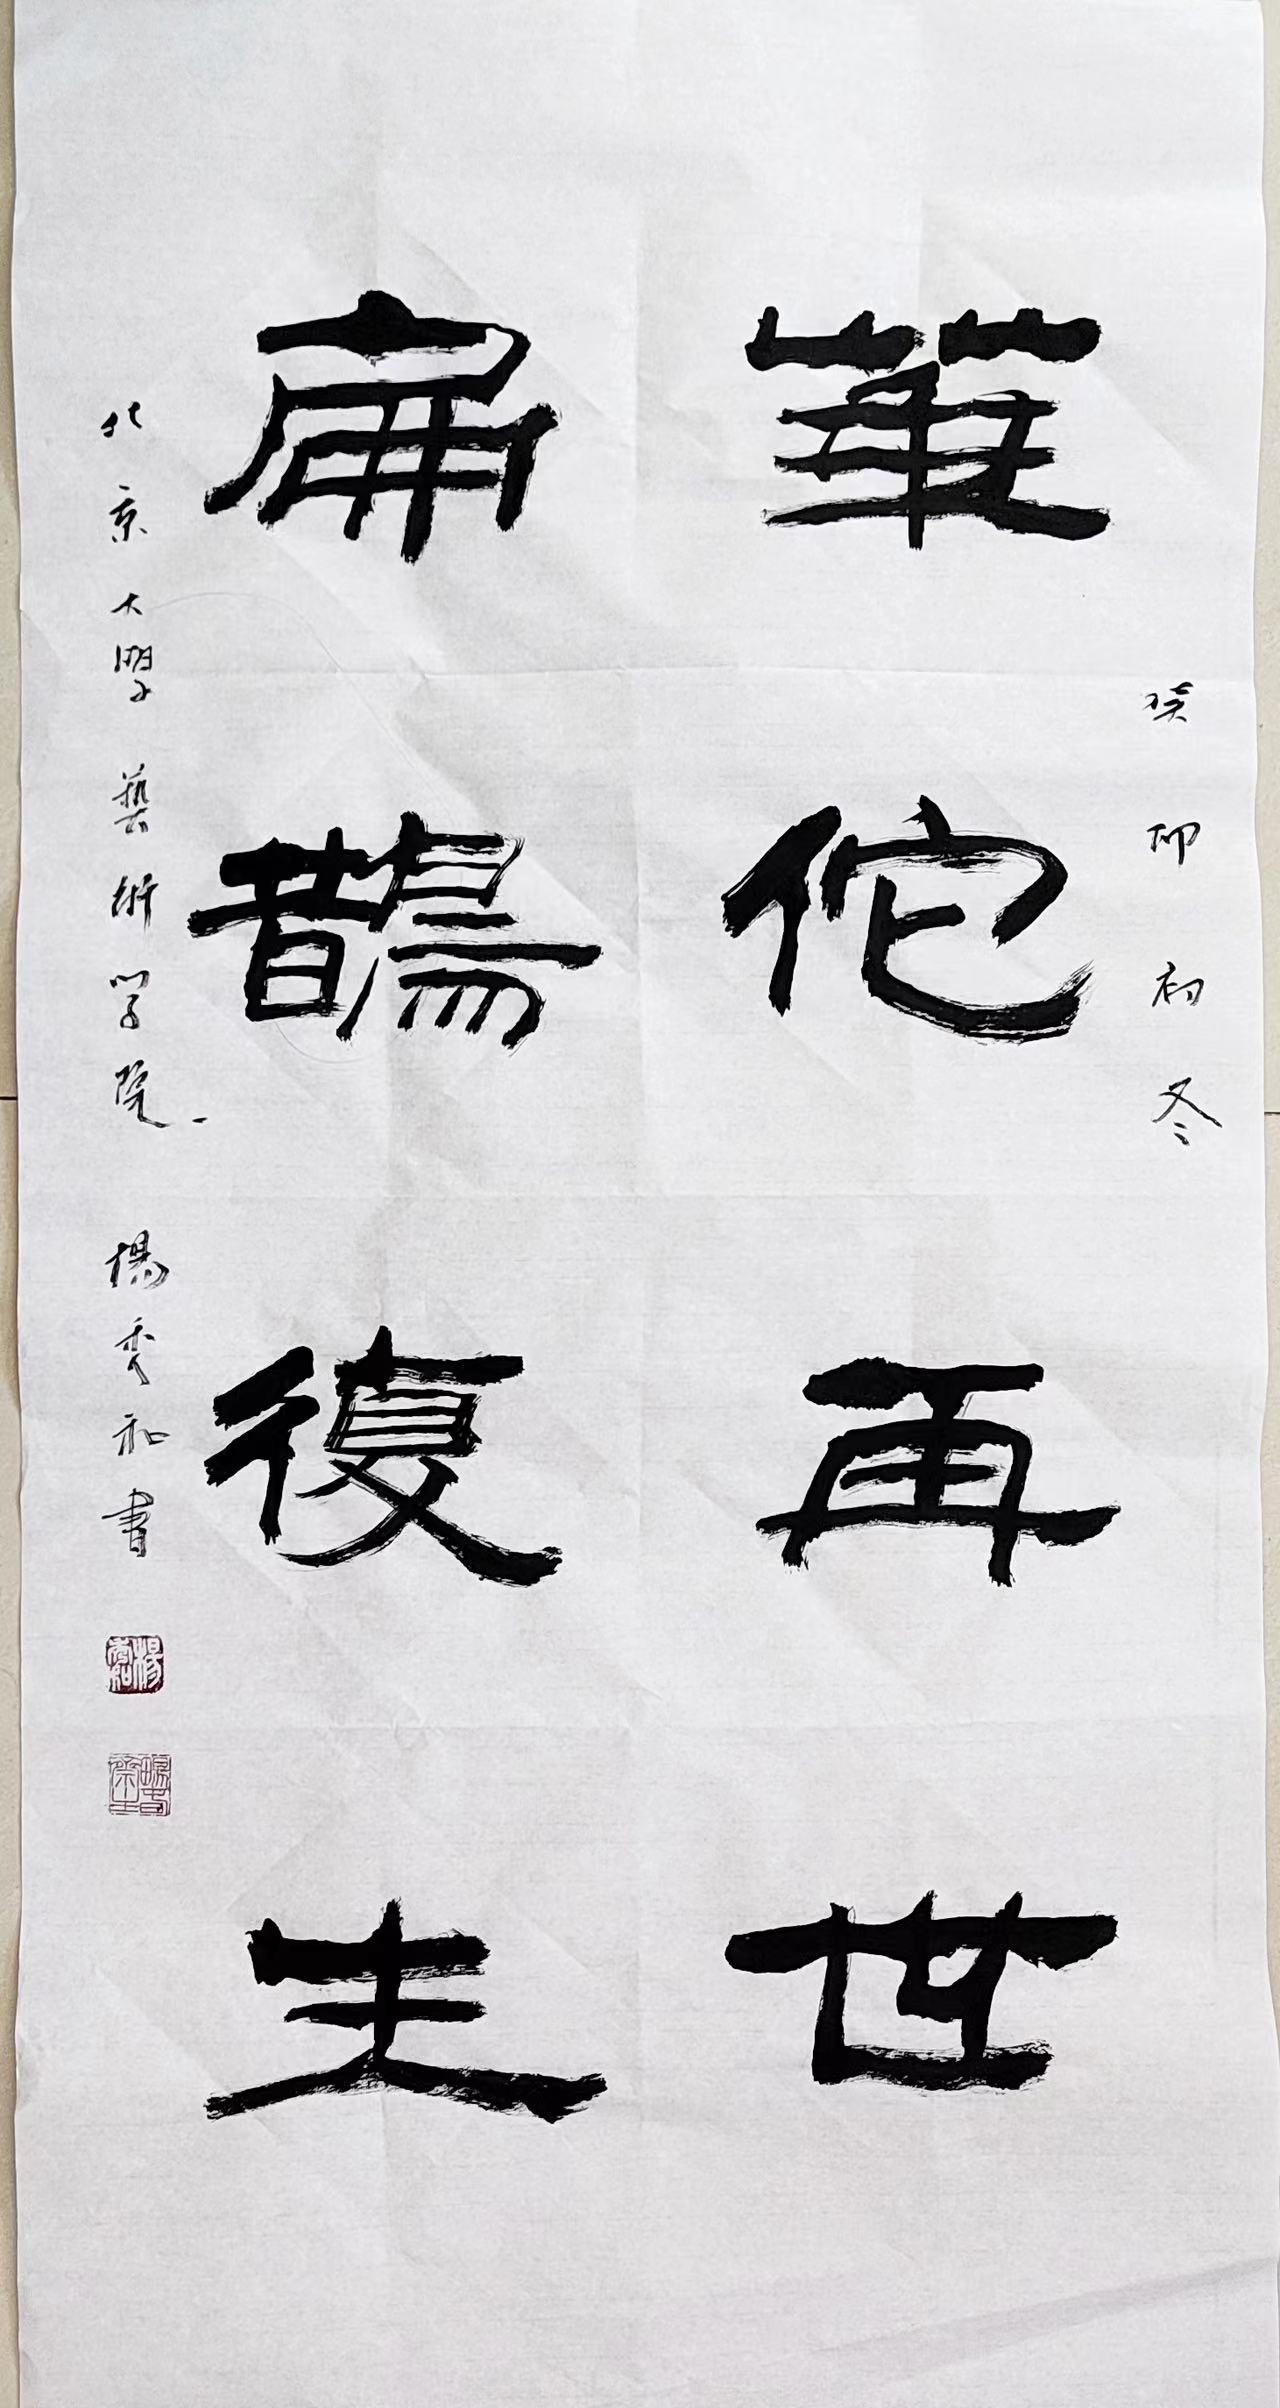 癸卯初冬
華佗再世
扁鵲復生
北京大學藝術學院
楊秀和書
楊秀和